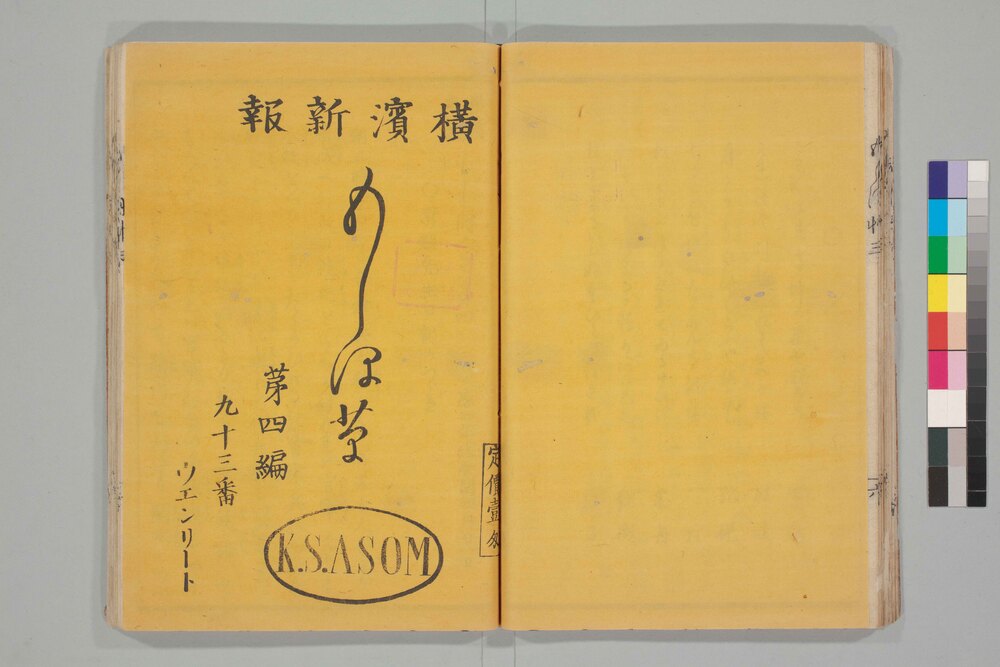 横濱新報
もしほ草
第四編
九十三番
ウエンリート
定價壹匁
K.S.ASOM